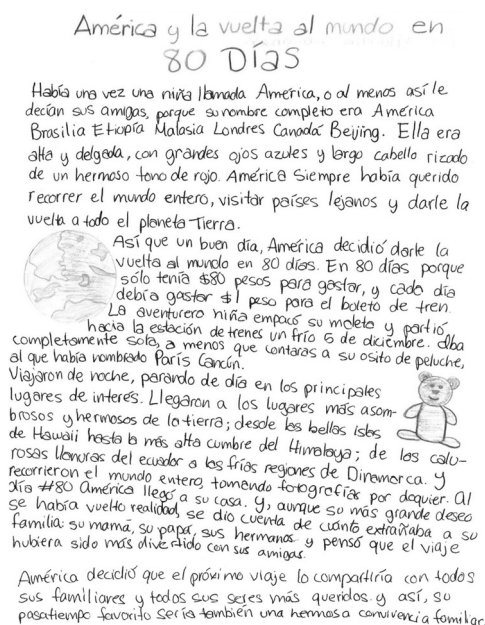 América y la vuelta al mundo en
80 Días
Había una vez una niña llamada América, o al menos así le
decían sus amigas, porque su nombre completo era América
Brasilia Etiopía Malasia Londres Canadá Beijing. Ella era
alta y delgada, con grandes ojos azules y largo cabello rizado
de un hermoso tono de rojo. América siempre había querido
recorrer el mundo entero, visitar países lejanos y darle la
vuelta a todo el planeta Tierra.
Así que un buen día, América decidió darle la
vuelta al mundo en 80 días. En 80 días porque
sólo tenía $80 pesos para gastar, y cada día
debía gastar $1 peso para el boleto de tren.
La aventurera niña empacó su maleta y partió,
hacia la estación de trenes un frío 5 de diciembre. Iba
completamente sola, a menos que contaras a su osito de peluche,
al que había nombrado París Cancún.
Viajaron de noche, parando de día en los principales
lugares de interés. Llegaron a los lugares más asom-
brosos y hermosos de la tierra; desde las bellas islas
de Hawaii hasta la más alta cumbre del Himalaya; de las calu-
rosas llanuras del ecuador a las frías regiones de Dinamarca. Y
recorrieron el mundo entero, tomando fotografías por doquier. Al
día #80 América llegó a su casa. Y, aunque su más grande deseo
se había vuelto realidad, se dio cuenta de cuánto extrañaba a su
familia: su mamá, su papá, sus hermanas y pensó que el viaje
hubiera sido más divertido con sus amigas.
América decidió que el próximo viaje lo compartiría con todos
sus familiares y todos sus seres más queridos y así, su
pasatiempo favorito sería también una hermosa convivencia familiar.